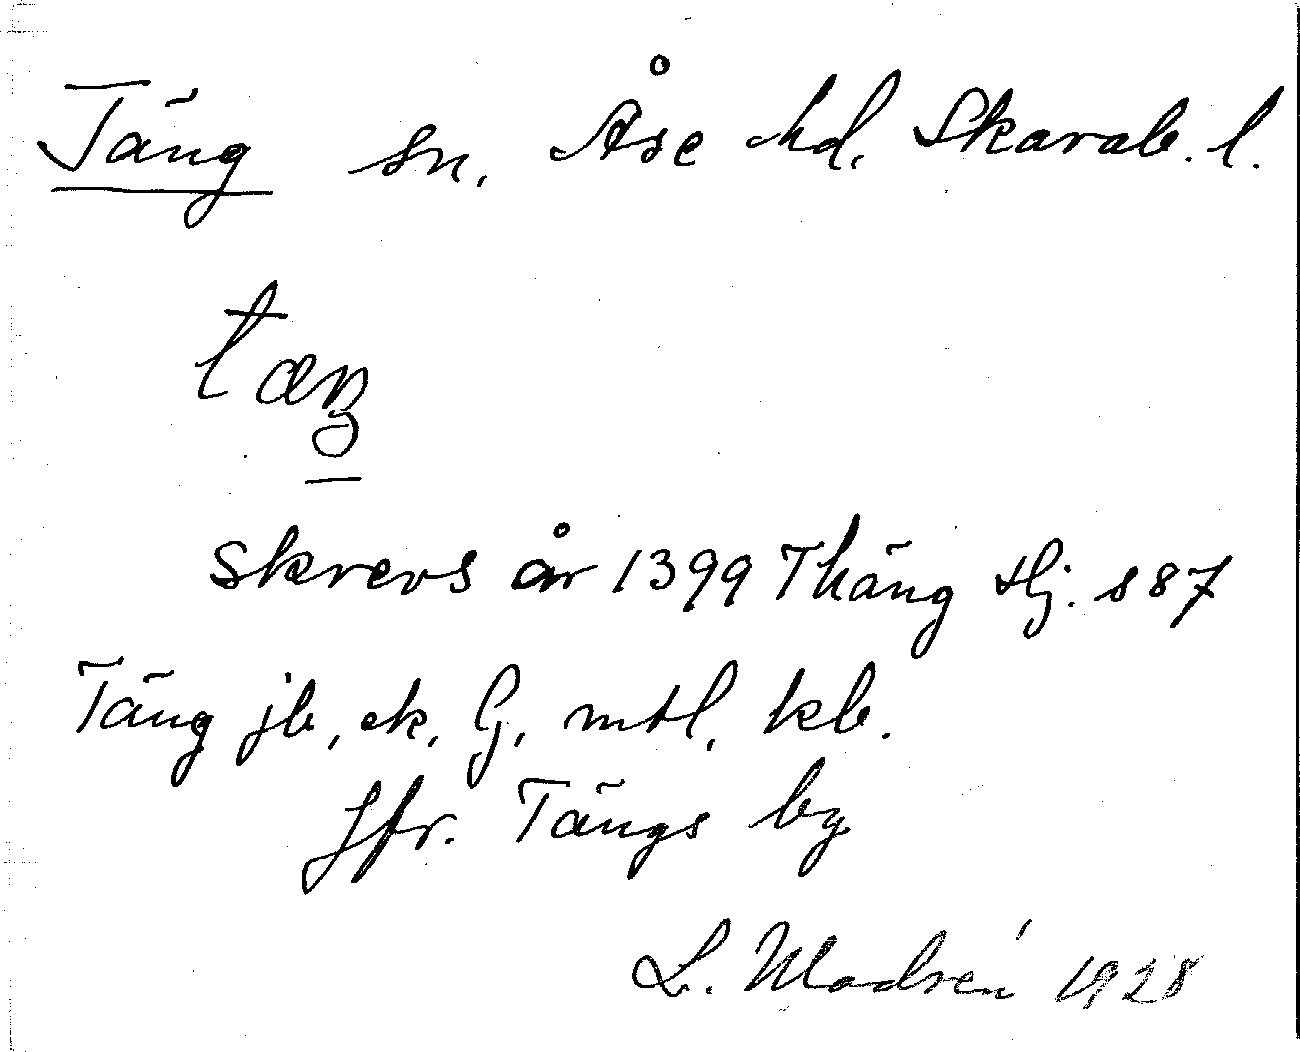 Täng sn. Åse hd. Skarab. l.
tæŋ
skrevs år 1399 Thäng Hj. s 87
Täng jb, ek, Gj, mtl, kb.
Jfr. Tängs by
L. Modrén 1928